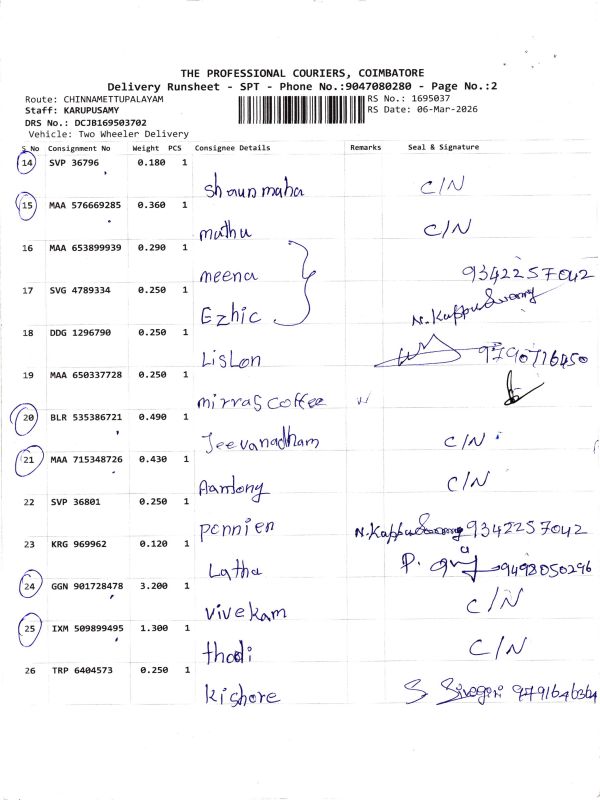 THE PROFESSIONAL COURIERS, COIMBATORE
Delivery Runsheet - SPT - Phone No.:9047080280 - Page No.:2
Route: CHINNAMETTUPALAYAM RS No.: 1695037
Staff: KARUPUSAMY RS Date: 06-Mar-2026
DRS No.: DCJB169503702
Vehicle: Two Wheeler Delivery
S No Consignment No Weight PCS Consignee Details Remarks Seal & Signature
14 SVP 36796 0.180 1
C/N
15 MAA 576669285 0.360 1
muthu C/N
16 MAA 653899939 0.290 1
meena 9342257042
17 SVG 4789334 0.250 1
Ezhic N.Kappuswamy
18 DDG 1296790 0.250 1
Lislon 9790716450
19 MAA 650337728 0.250 1
mirras coffee
20 BLR 535386721 0.490 1
Jeevanadham C/N
21 MAA 715348726 0.430 1
C/N
22 SVP 36801 0.250 1
pennien N.Kappuswamy 9342257042
23 KRG 969962 0.120 1
Latha P. 9498050296
24 GGN 901728478 3.200 1
vivekam C/N
25 IXM 509899495 1.300 1
C/N
26 TRP 6404573 0.250 1
kishore S 9791646364